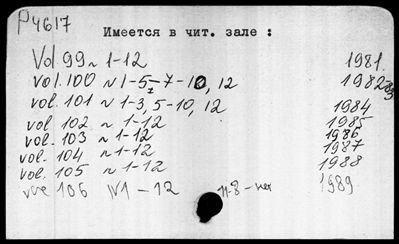 P4617
Имеется в чит. зале :
Vol 99 N 1-12 1981.
vol. 100 N 1-5, 7-10, 12 1982-83
vol. 101 N 1-3, 5-10, 12 1984
vol. 102 N 1-12 1985
vol. 103 N 1-12 1986
vol. 104 N 1-12 1987
vol. 105 N 1-12 1988
vol 106 N1-12 11-8-нет 1989